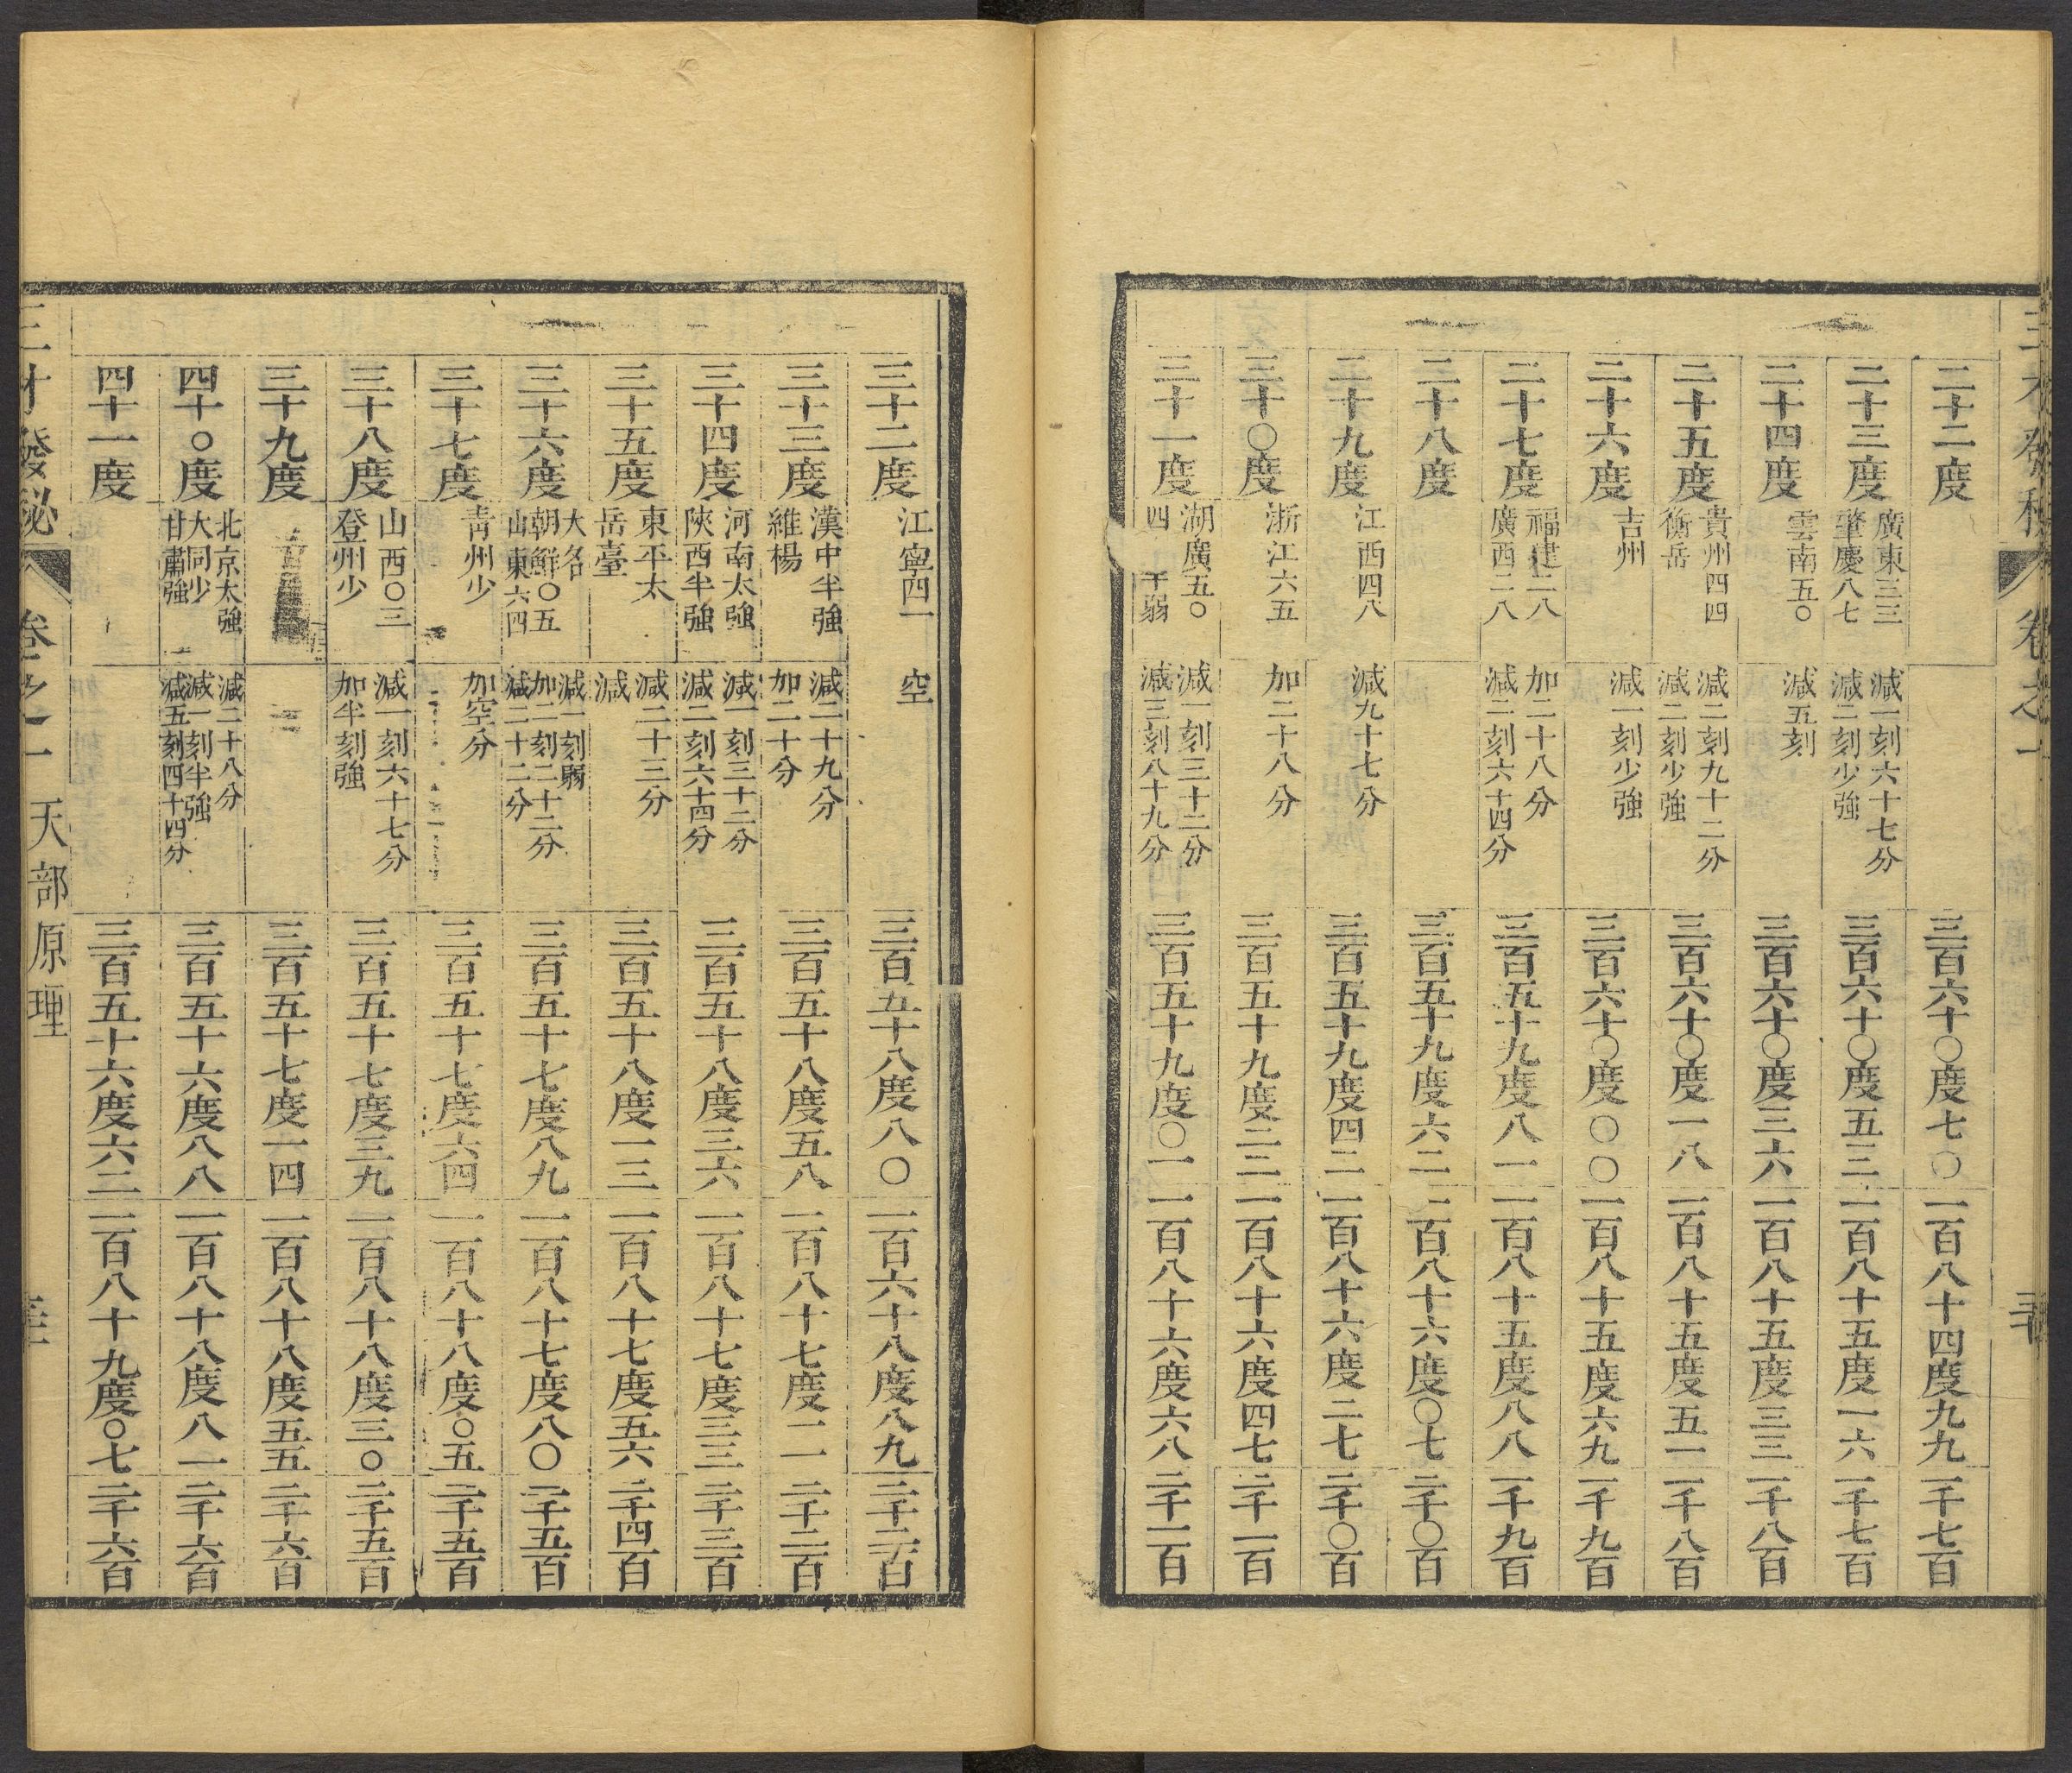 三才發秘 卷之一
二十二度 三百六十〇度七〇 一百八十四度九九 一千七百
二十三度 廣東三三 肇慶八七 減一刻六十七分 減二刻少強 三百六十〇度五三 一百八十五度一六 一千七百
二十四度 雲南五〇 減五刻 三百六十〇度三六 一百八十五度三三 一千八百
二十五度 貴州四四 衡岳 減二刻九十二分 減二刻少強 三百六十〇度一八 一百八十五度五一 一千八百
二十六度 吉州 減一刻少強 三百六十〇度〇〇 一百八十五度六九 一千九百
二十七度 福建二八 廣西二八 加二十八分 減二刻六十四分 三百五十九度八一 一百八十五度八八 一千九百
二十八度 三百五十九度六二 一百八十六度〇七 二千〇百
二十九度 江西四八 減九十七分 三百五十九度四二 一百八十六度二七 二千〇百
三十〇度 浙江六五 加二十八分 三百五十九度二二 一百八十六度四七 二千一百
三十一度 湖廣五〇 四 于弱 減一刻三十二分 減三刻八十九分 三百五十九度〇一 一百八十六度六八 二千一百
三十二度 江寧四一 空 三百五十八度八〇 一百六十八度八九 二千二百
三十三度 漢中半強 維楊 減二十九分 加二十分 三百五十八度五八 一百八十七度一一 二千二百
三十四度 河南太強 陝西半強 減一刻三十二分 減二刻六十四分 三百五十八度三六 一百八十七度三三 二千三百
三十五度 東平太 岳臺 減二十三分 減 三百五十八度一三 一百八十七度五六 二千四百
三十六度 大名 朝鮮〇五 山東六四 減一刻弱 加二刻二十二分 減二十二分 三百五十七度八九 一百八十七度八〇 二千五百
三十七度 青州少 加空分 三百五十七度六四 一百八十八度〇五 二千五百
三十八度 山西〇三 登州少 減一刻六十七分 加半刻強 三百五十七度三九 一百八十八度三〇 二千五百
三十九度 三百五十七度一四 一百八十八度五五 二千六百
四十〇度 北京太強 大同少 甘肅強 減二十八分 減一刻半強 減五刻四十四分 三百五十六度八八 一百八十八度八一 二千六百
四十一度 三百五十六度六二 一百八十九度〇七 二千六百
三才發秘 卷之一 天部原理